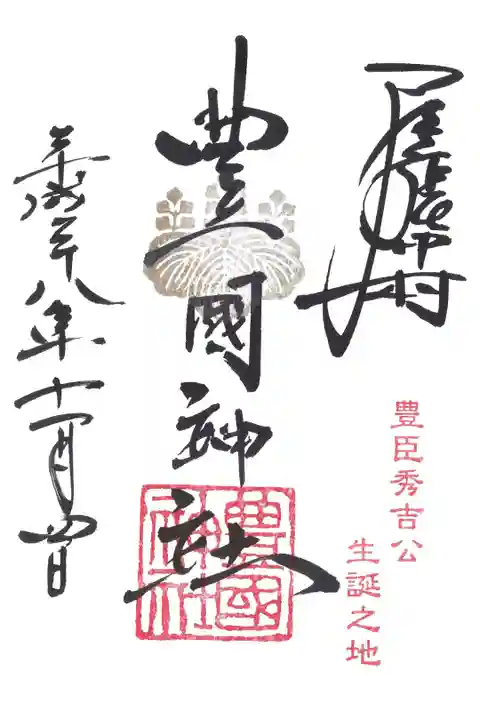 尾張中村
豊臣秀吉公
生誕之地
豊國神社
豊國
神社
平成二十八年十一月四日